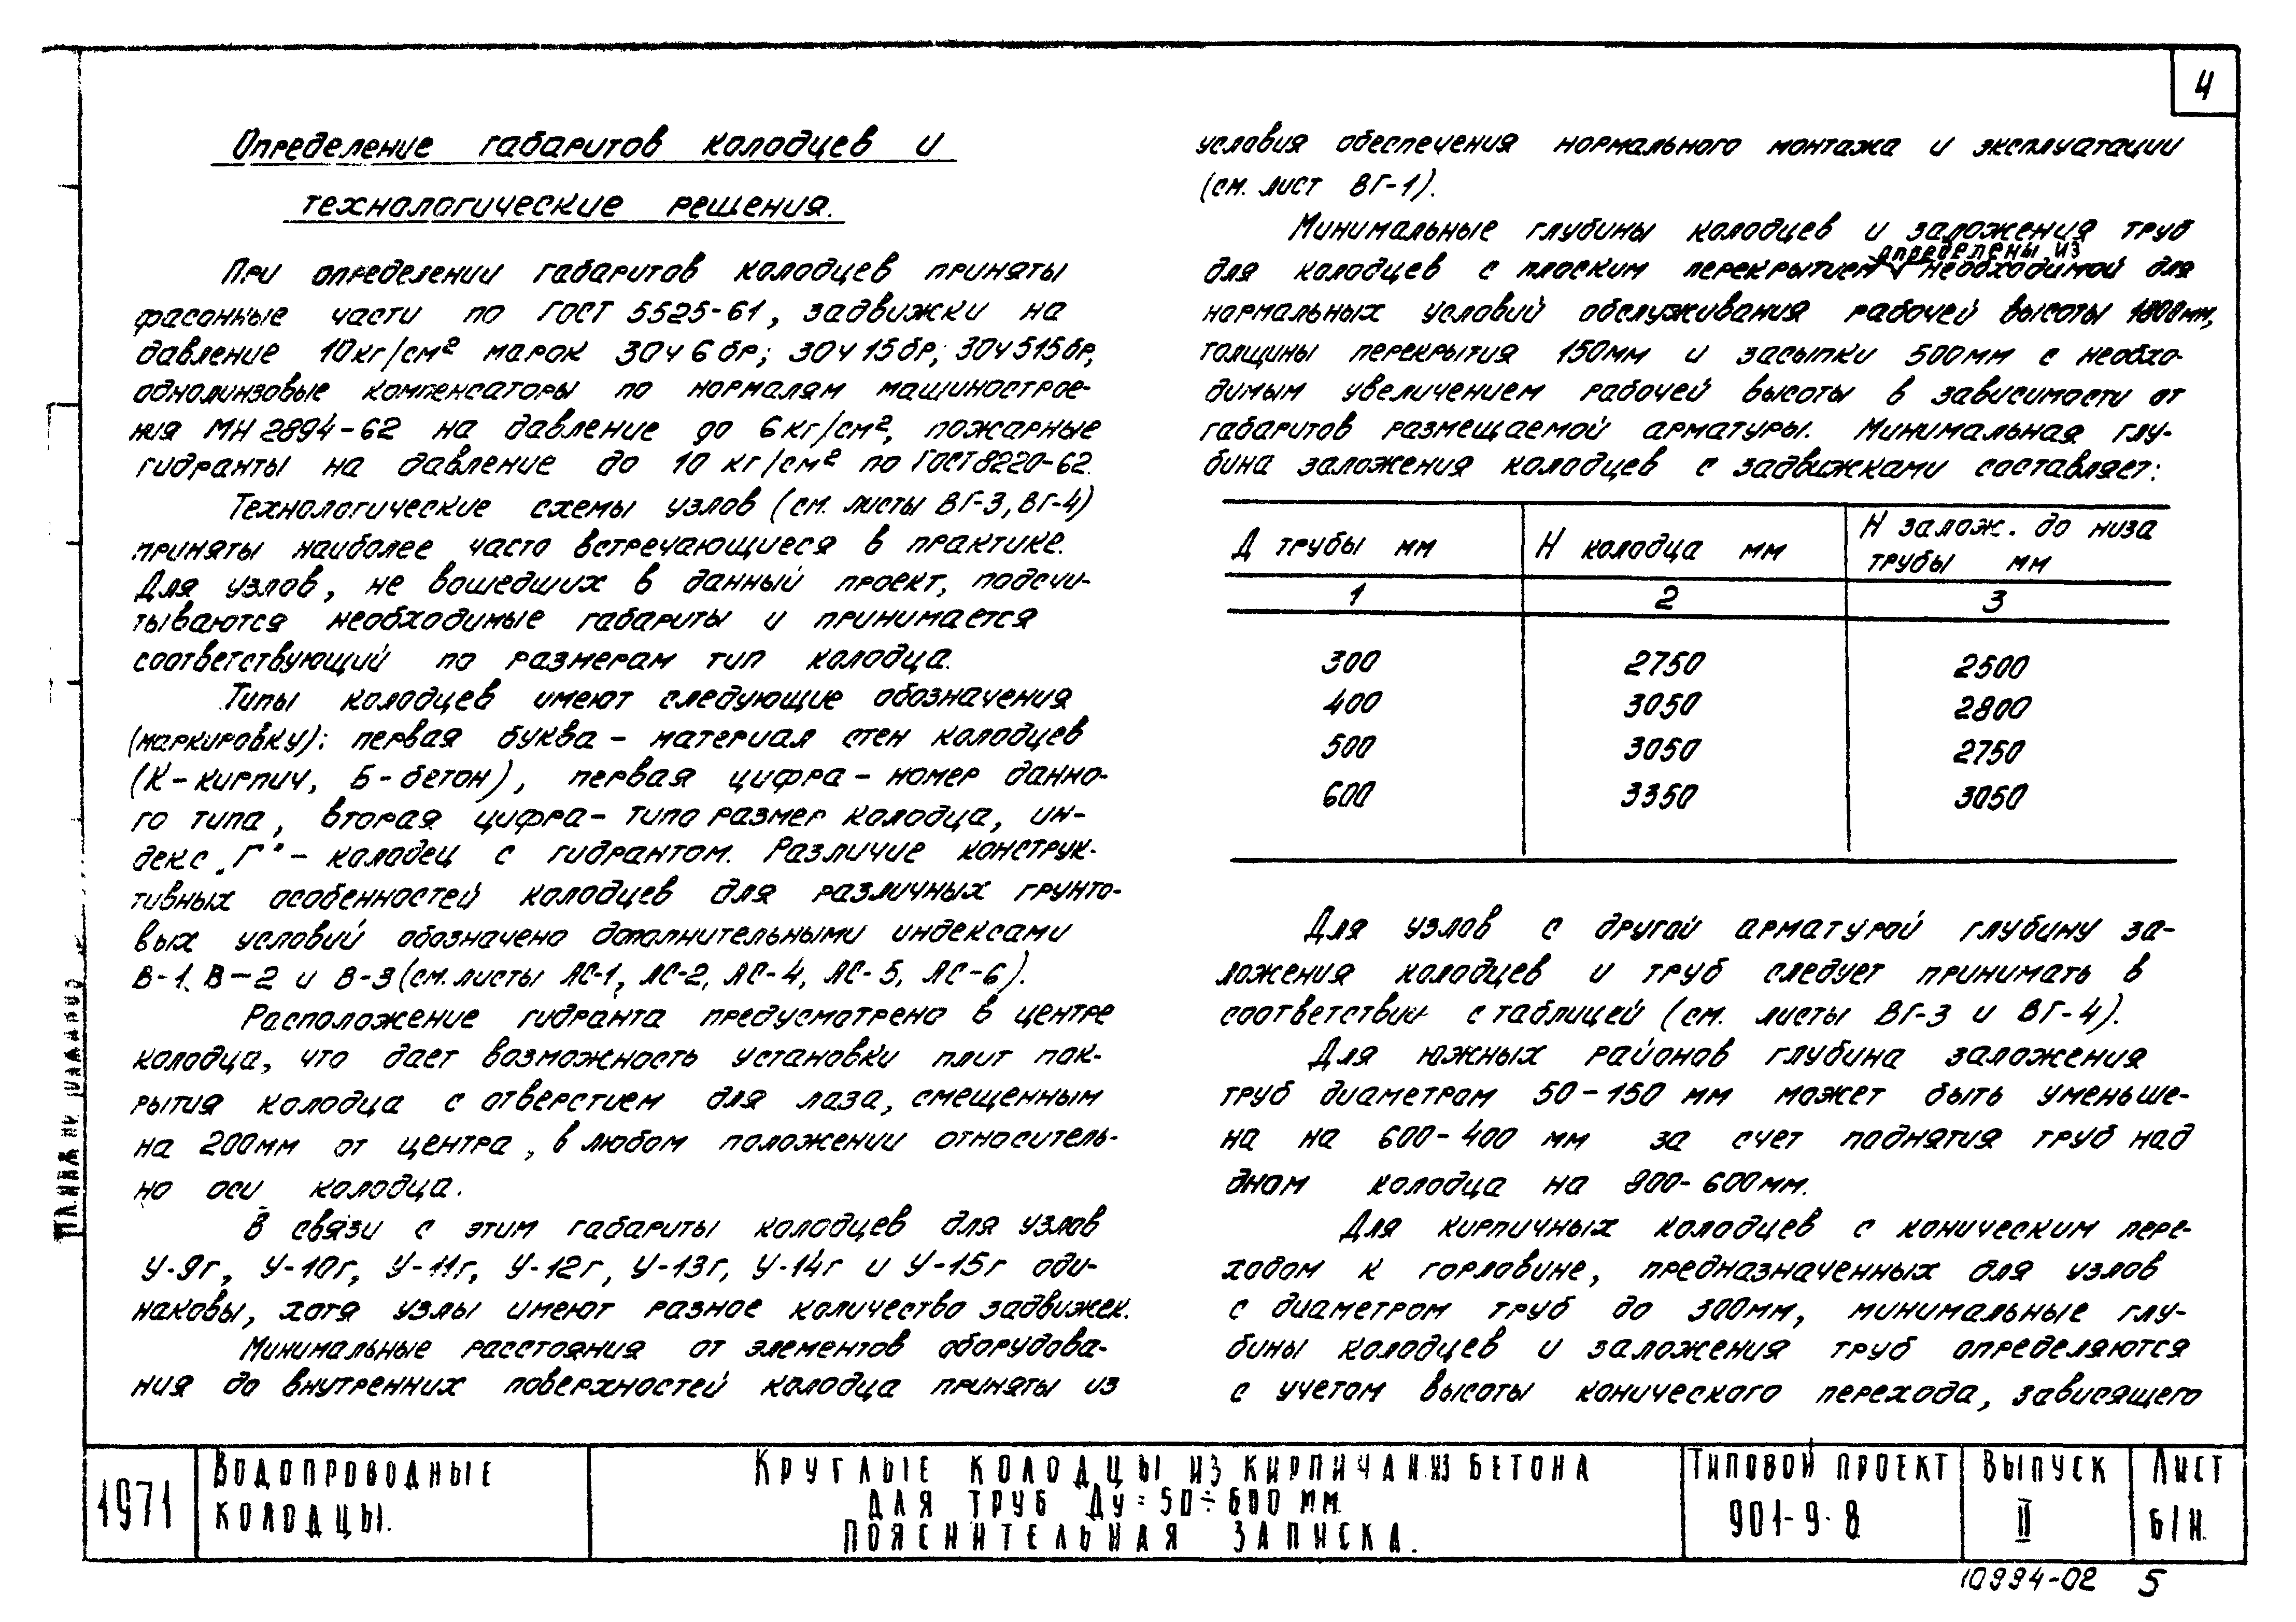 4
Определение габаритов колодцев и
технологические решения.
При определении габаритов колодцев приняты
фасонные части по ГОСТ 5525-61, задвижки на
давление 10кг/см² марок 30ч6бр; 30ч15бр; 30ч515бр,
однолинзовые компенсаторы по нормалям машинострое-
ния МН 2894-62 на давление до 6кг/см², пожарные
гидранты на давление до 10 кг/см² по ГОСТ 8220-62.
Технологические схемы узлов (см. листы ВГ-3, ВГ-4)
приняты наиболее часто встречающиеся в практике.
Для узлов, не вошедших в данный проект, подсчи-
тываются необходимые габариты и принимается
соответствующий по размерам тип колодца.
Типы колодцев имеют следующие обозначения
(маркировку): первая буква - материал стен колодцев
(К-кирпич, Б-бетон), первая цифра - номер данно-
го типа, вторая цифра - типо размер колодца, ин-
декс „Г" - колодец с гидрантом. Различие конструк-
тивных особенностей колодцев для различных грунто-
вых условий обозначено дополнительными индексами
В-1, В-2 и В-3 (см. листы АС-1, АС-2, АС-4, АС-5, АС-6).
Расположение гидранта предусмотрено в центре
колодца, что дает возможность установки плит пок-
рытия колодца с отверстием для лаза, смещенным
на 200мм от центра, в любом положении относитель-
но оси колодца.
В связи с этим габариты колодцев для узлов
У-9г, У-10г, У-11г, У-12г, У-13г, У-14г и У-15г оди-
наковы, хотя узлы имеют разное количество задвижек.
Минимальные расстояния от элементов оборудова-
ния до внутренних поверхностей колодца приняты из
условия обеспечения нормального монтажа и эксплуатации
(см. лист ВГ-1).
Минимальные глубины колодцев и заложения труб
для колодцев с плоским перекрытием определены из необходимой для
нормальных условий обслуживания рабочей высоты 1800мм,
толщины перекрытия 150мм и засыпки 500мм с необхо-
димым увеличением рабочей высоты в зависимости от
габаритов размещаемой арматуры. Минимальная глу-
бина заложения колодцев с задвижками составляет:
Д трубы мм | Н колодца мм | Н залож. до низа трубы мм
1 | 2 | 3
300 | 2750 | 2500
400 | 3050 | 2800
500 | 3050 | 2750
600 | 3350 | 3050
Для узлов с другой арматурой глубину за-
ложения колодцев и труб следует принимать в
соответствии с таблицей (см. листы ВГ-3 и ВГ-4).
Для южных районов глубина заложения
труб диаметром 50-150 мм может быть уменьше-
на на 600-400 мм за счет поднятия труб над
дном колодца на 800-600мм.
Для кирпичных колодцев с коническим пере-
ходом к горловине, предназначенных для узлов
с диаметром труб до 300мм, минимальные глу-
бины колодцев и заложения труб определяются
с учетом высоты конического перехода, зависящего
1971
Водопроводные
колодцы.
Круглые колодцы из кирпича и из бетона
для труб Ду=50÷600 мм.
Пояснительная записка.
Типовой проект
901-9-8
Выпуск
II
Лист
б/н.
10994-02 5